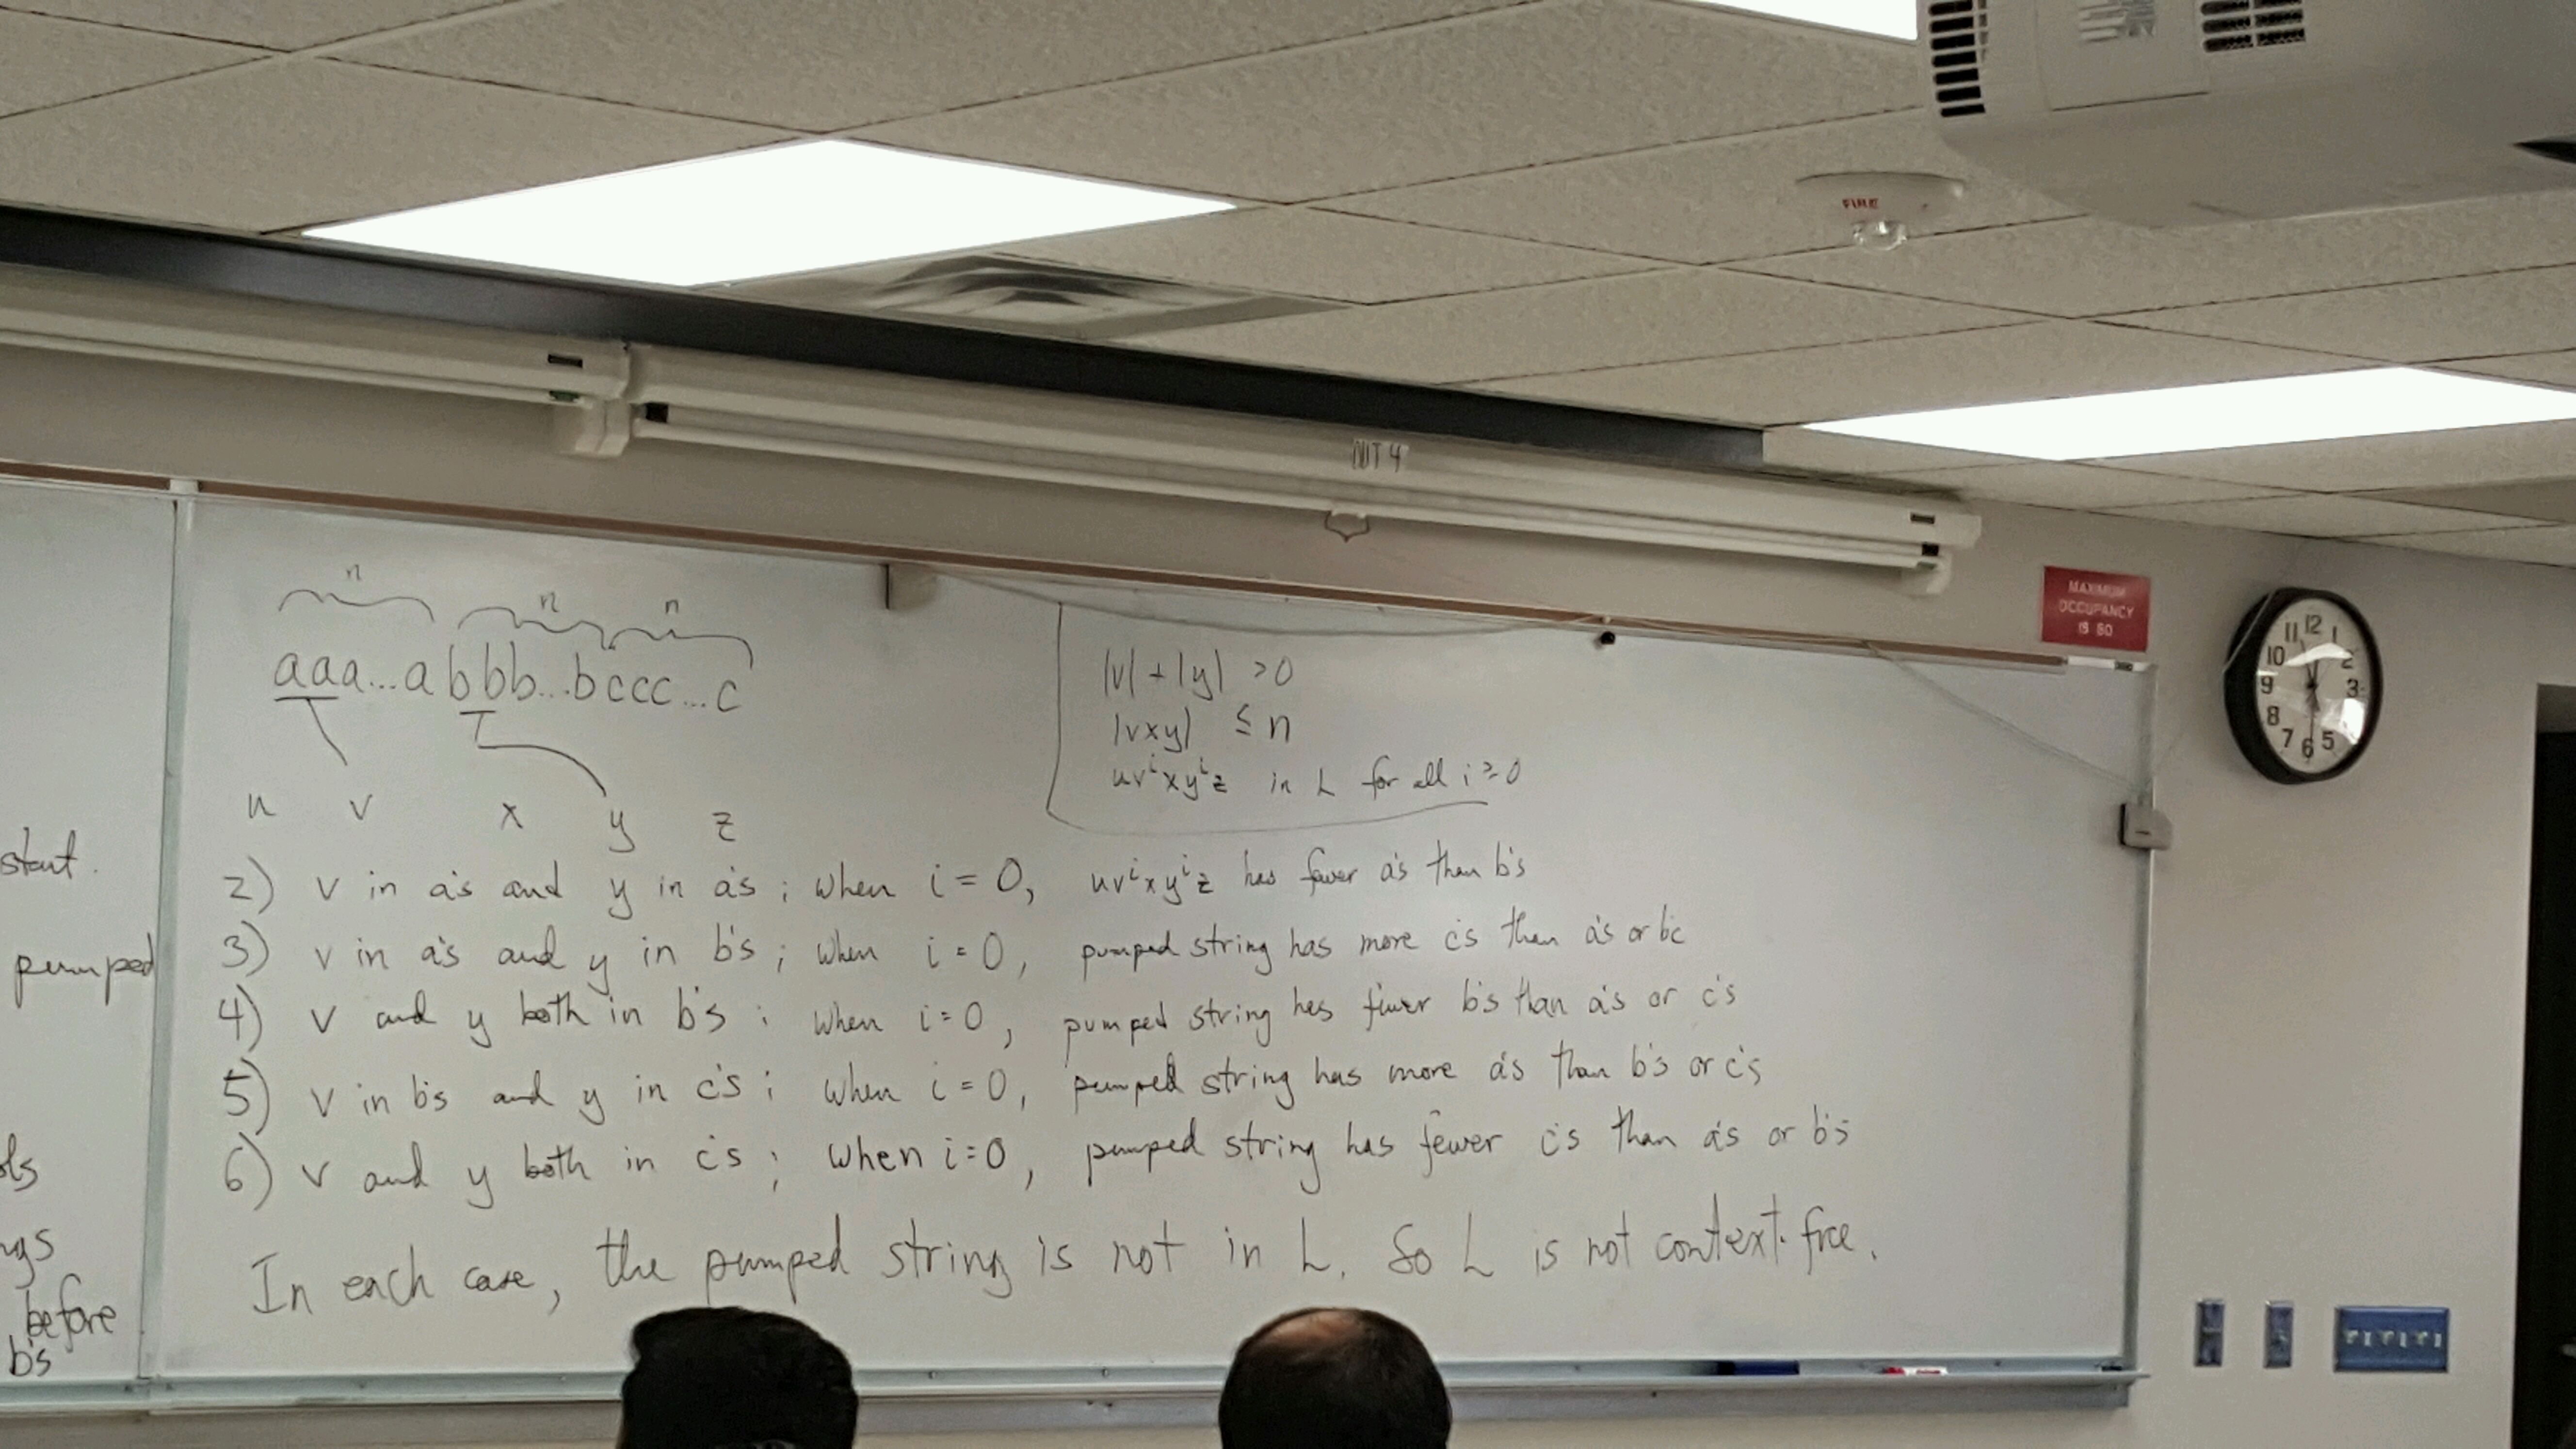 FIRE
NIT 4
MAXIMUM
OCCUPANCY
IS 80
12
11 1
10 2
9 3
8
7 6 5
n n n
aaa...abbb...bccc...c
u v x y z
|v| + |y| > 0
|vxy| ≤ n
uvⁱxyⁱz in L for all i ≥ 0
start.
pumped
ols
ngs
before
b's
2) v in a's and y in a's ; when i = 0, uvⁱxyⁱz has fewer a's than b's
3) v in a's and y in b's ; when i = 0, pumped string has more c's than a's or bc
4) v and y both in b's ; when i = 0, pumped string hes fewer b's than a's or c's
5) v in b's and y in c's ; when i = 0, pumped string has more a's than b's or c's
6) v and y both in c's ; when i = 0, pumped string has fewer c's than a's or b's
In each case, the pumped string is not in L. So L is not context-free.